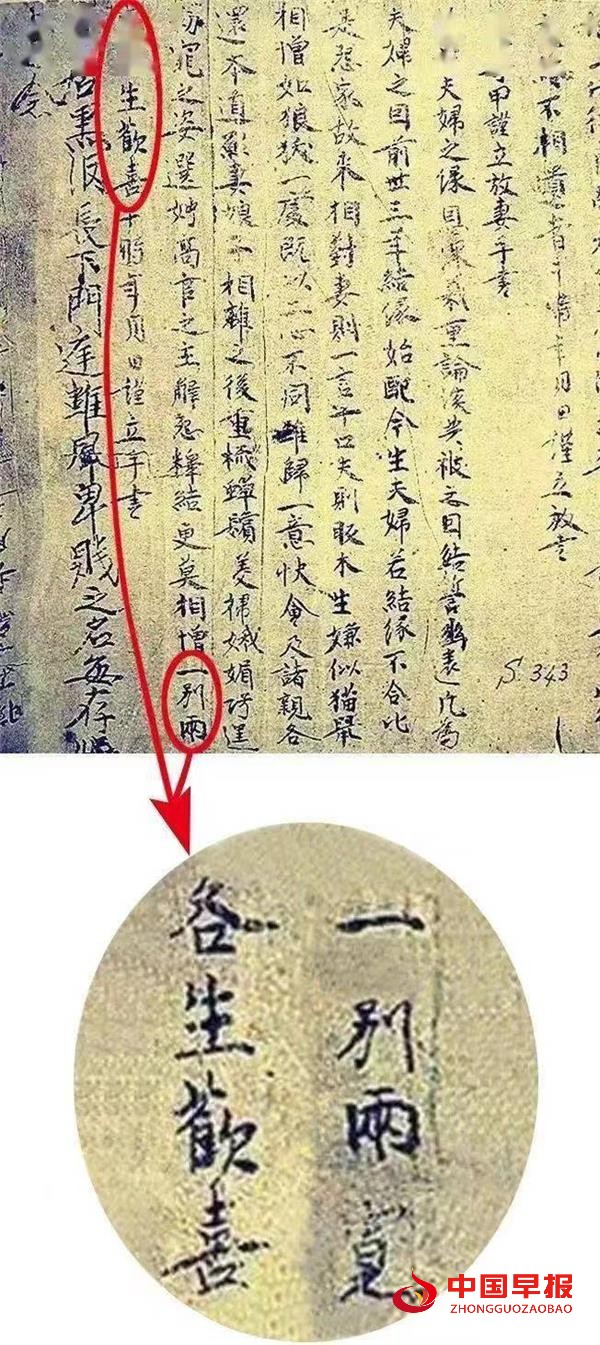 不相遺者于時年月日謹立放書
甲謹立放妻手書
S.343
夫婦之緣恩深義重論談共被之因結誓幽遠凡為
夫婦之因前世三年結緣始配今生夫婦若結緣不合比
是怨家故來相對妻則一言十口夫則販木生嫌似猫鼠
相憎如狼犺一處既以二心不同難歸一意快會及諸親各
還本道願妻娘子相離之後重梳蟬鬢美掃娥媚巧逞
窈窕之姿選娉高官之主解怨釋結更莫相憎一別兩
生歡喜于時年月日謹立手書
長下門庭雖居卑賤之名每存
一別兩寬
各生歡喜
中国早报
ZHONGGUOZAOBAO